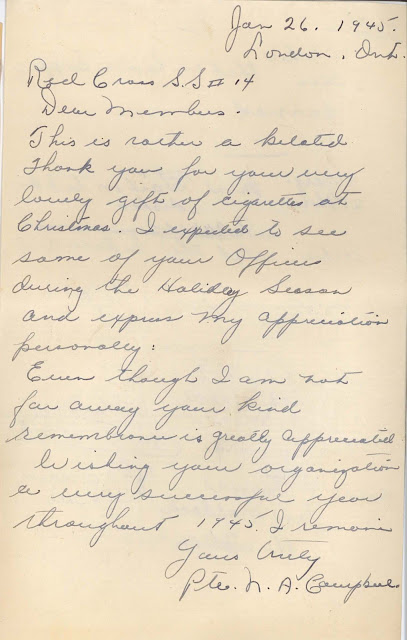 Jan 26. 1945.
London, Ont.
Red Cross S.S # 14
Dear Members.
This is rather a belated
thank you for your very
lovely gift of cigarettes at
Christmas. I expected to see
some of your Officers
during the Holiday Season
and express my appreciation
personally:
Even though I am not
far away your kind
remembrance is greatly appreciated
Wishing your organization
a very successful year
throughout 1945. I remain
Yours truly
Pte. N. A. Campbell